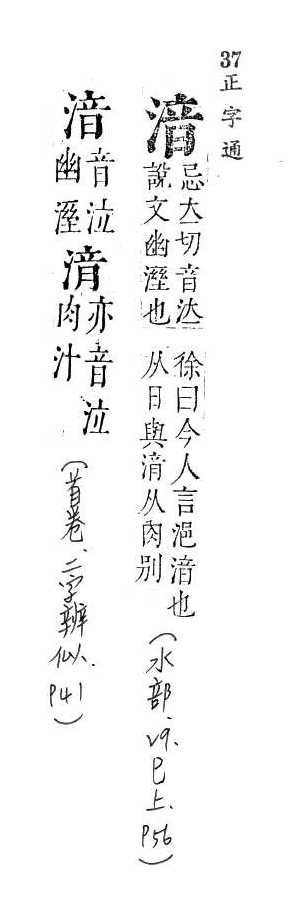 37正字通
湆
忌立切音泣
說文幽溼也
徐曰今人言浥湆也
从日與湇从肉別
(水部、29.巳上.P56)
湆
音泣
幽溼
湇
亦音泣
肉汁
(首卷、二字辨似.P41)